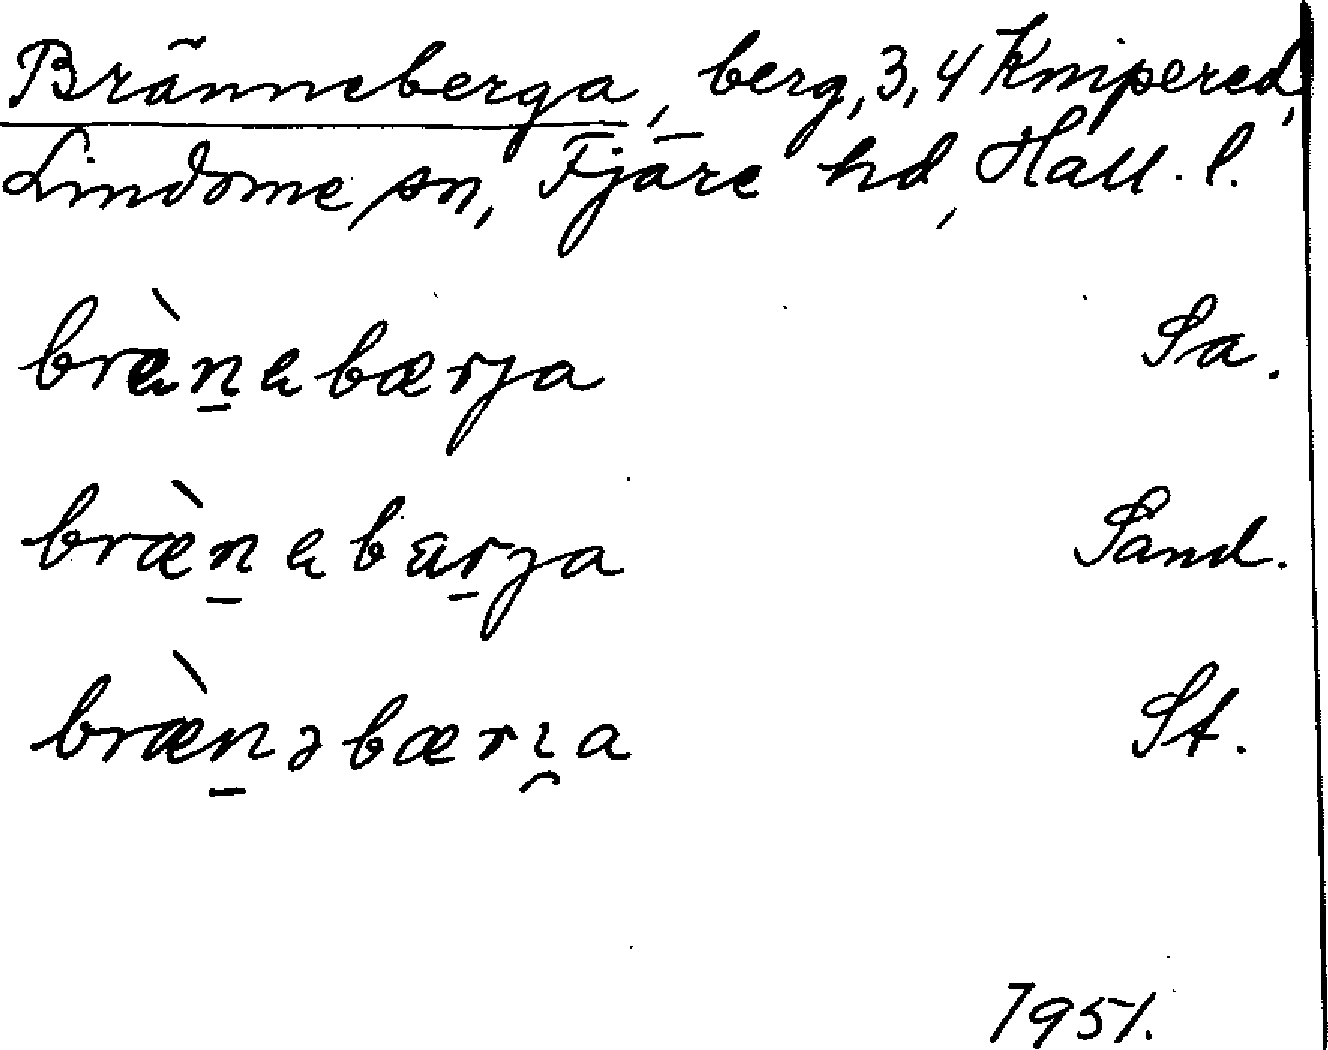 Bränneberga, berg, 3,4 Knipered,
Lindome sn, Fjäre hd, Hall. l.
brὲn̲ebærja Sa.
bræ̀n̲ebar̲ja Sand.
bræ̀n̲əbæri̯a St.
1951.